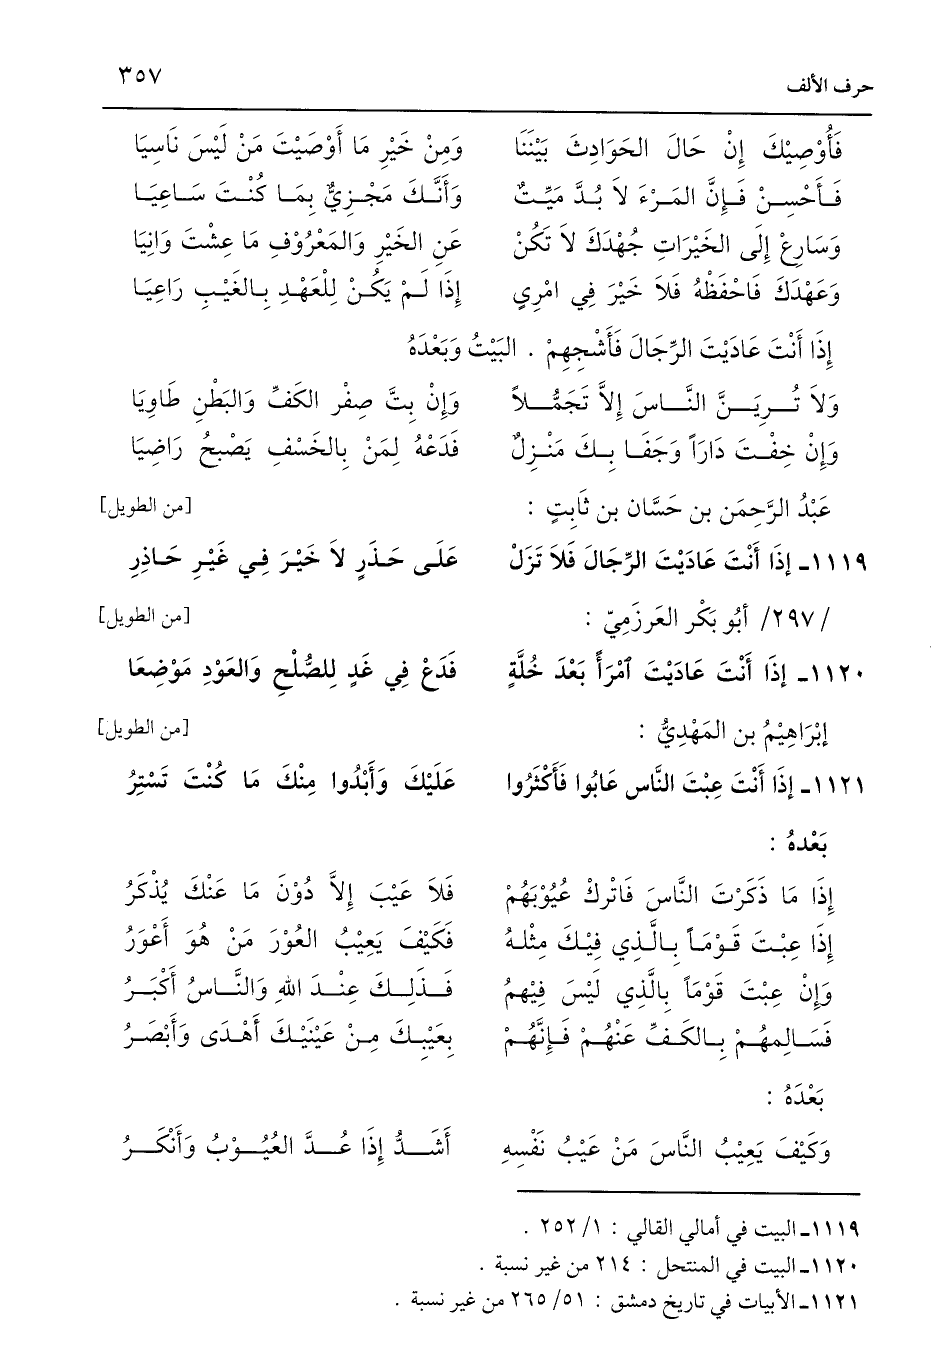 حرف الألف ٣٥٧
فَأُوْصِيْكَ إِنْ حَالَ الحَوَادِثَ بَيْنَنَا وَمِنْ خَيْرِ مَا أَوْصَيْتَ مَنْ لَيْسَ نَاسِيَا
فَأَحْسِنْ فَإِنَّ المَرْءَ لاَ بُدَّ مَيِّتٌ وَأَنَّكَ مَجْزِيٌّ بِمَا كُنْتَ سَاعِيَا
وَسَارِعْ إِلَى الخَيْرَاتِ جُهْدَكَ لاَ تَكُنْ عَنِ الخَيْرِ وَالمَعْرُوْفِ مَا عِشْتَ وَانِيَا
وَعَهْدَكَ فَاحْفَظْهُ فَلاَ خَيْرَ فِي امْرِي إِذَا لَمْ يَكُنْ لِلْعَهْدِ بِالغَيْبِ رَاعِيَا
إِذَا أَنْتَ عَادَيْتَ الرِّجَالَ فَأَشْجِهِمْ . البَيْتُ وَبَعْدَهُ
وَلاَ تُرِيَنَّ النَّاسَ إِلاَّ تَجَمُّلاً وَإِنْ بِتَّ صِفْر الكَفِّ وَالبَطْنِ طَاوِيَا
وَإِنْ خِفْتَ دَارَاً وَجَفَا بِكَ مَنْزِلٌ فَدَعْهُ لِمَنْ بِالخَسْفِ يَصْبحُ رَاضِيَا
عَبْدُ الرَّحِمَن بن حَسَّان بن ثَابِتٍ : [من الطويل]
١١١٩ـ إِذَا أَنْتَ عَادَيْتَ الرِّجَالَ فَلاَ تَزَلْ عَلَى حَذَرٍ لاَ خَيْرَ فِي غَيْرِ حَاذِرِ
/٢٩٧/ أَبُو بَكْر العَرزَمِيّ : [من الطويل]
١١٢٠ـ إِذَا أَنْتَ عَادَيْتَ ٱمْرَأً بَعْدَ خُلَّةٍ فَدَعْ فِي غَدٍ لِلصُّلْحِ وَالعَوْدِ مَوْضِعَا
إِبْرَاهِيْمُ بن المَهْدِيُّ : [من الطويل]
١١٢١ـ إِذَا أَنْتَ عِبْتَ النَّاس عَابُوا فَأَكْثَرُوا عَلَيْكَ وَأَبْدُوا مِنْكَ مَا كُنْتَ تَسْتِرُ
بَعْدهُ :
إِذَا مَا ذَكَرْتَ النَّاسَ فَاتْركْ عُيُوْبَهُمْ فَلاَ عَيْبَ إِلاَّ دُوْنَ مَا عَنْكَ يُذْكَرُ
إِذَا عِبْتَ قَوْمَاً بِالَّذِي فِيْكَ مِثْلهُ فَكَيْفَ يَعِيْبُ العُوْرَ مَنْ هُوَ أَعْوَرُ
وَإِنْ عِبْتَ قَوْمَاً بِالَّذِي لَيْسَ فِيْهمُ فَذَلِكَ عِنْدَ اللهِ وَالنَّاسُ أَكْبَرُ
فَسَالِمهُمْ بِالكَفِّ عَنْهُمْ فَإِنَّهُمْ بِعَيْبِكَ مِنْ عَيْنَيْكَ أَهْدَى وَأَبْصَرُ
بَعْدَهُ :
وَكَيْفَ يَعِيْبُ النَّاسَ مَنْ عَيْبُ نَفْسِهِ أَشَدُّ إِذَا عُدَّ العُيُوْبُ وَأَنْكَرُ
١١١٩ـ البيت في أمالي القالي : ١/ ٢٥٢ .
١١٢٠ـ البيت في المنتحل : ٢١٤ من غير نسبة .
١١٢١ـ الأبيات في تاريخ دمشق : ٥١/ ٢٦٥ من غير نسبة .